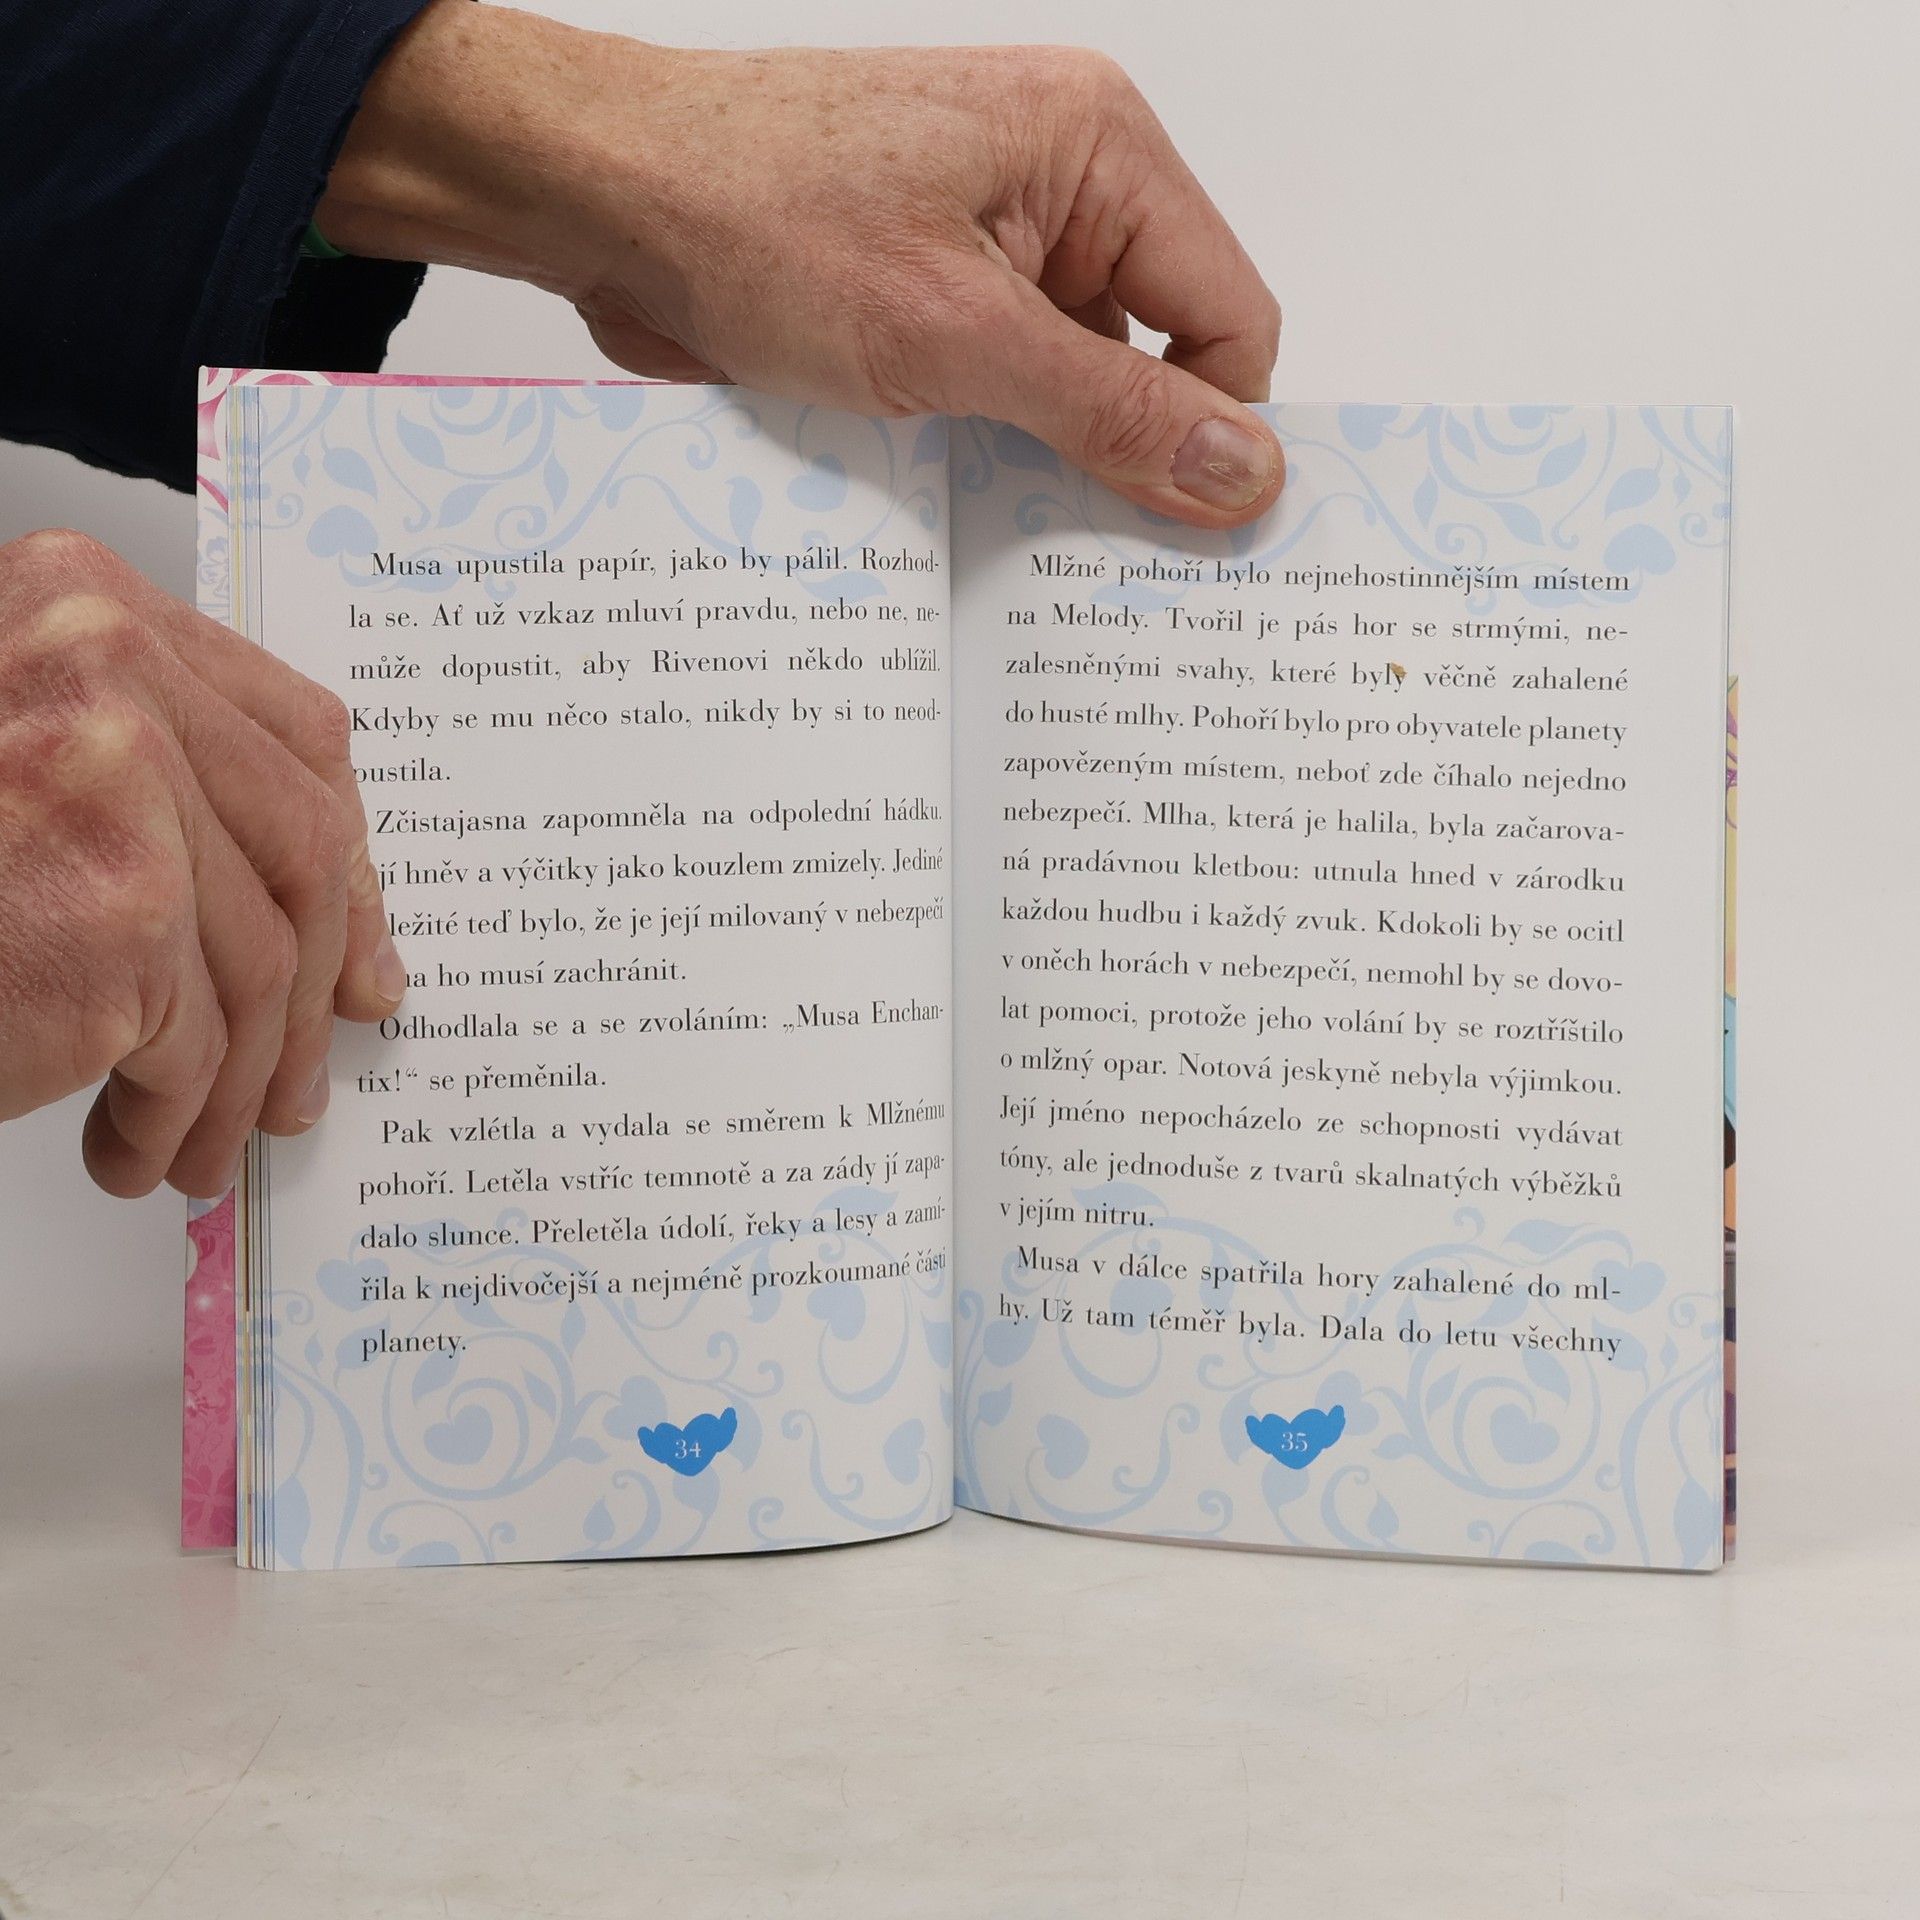 Musa upustila papír, jako by pálil. Rozhod-
la se. Ať už vzkaz mluví pravdu, nebo ne, ne-
může dopustit, aby Rivenovi někdo ublížil.
Kdyby se mu něco stalo, nikdy by si to neod-
pustila.
Zčistajasna zapomněla na odpolední hádku.
jí hněv a výčitky jako kouzlem zmizely. Jediné
ležité teď bylo, že je její milovaný v nebezpečí
na ho musí zachránit.
Odhodlala se a se zvoláním: „Musa Enchan-
tix!“ se přeměnila.
Pak vzlétla a vydala se směrem k Mlžnému
pohoří. Letěla vstříc temnotě a za zády jí zapa-
dalo slunce. Přeletěla údolí, řeky a lesy a zamí-
řila k nejdivočejší a nejméně prozkoumané části
planety.
34
Mlžné pohoří bylo nejnehostinnějším místem
na Melody. Tvořil je pás hor se strmými, ne-
zalesněnými svahy, které byly věčně zahalené
do husté mlhy. Pohoří bylo pro obyvatele planety
zapovězeným místem, neboť zde číhalo nejedno
nebezpečí. Mlha, která je halila, byla začarova-
ná pradávnou kletbou: utnula hned v zárodku
každou hudbu i každý zvuk. Kdokoli by se ocitl
v oněch horách v nebezpečí, nemohl by se dovo-
lat pomoci, protože jeho volání by se roztříštilo
o mlžný opar. Notová jeskyně nebyla výjimkou.
Její jméno nepocházelo ze schopnosti vydávat
tóny, ale jednoduše z tvarů skalnatých výběžků
v jejím nitru.
Musa v dálce spatřila hory zahalené do ml-
hy. Už tam téměř byla. Dala do letu všechny
35